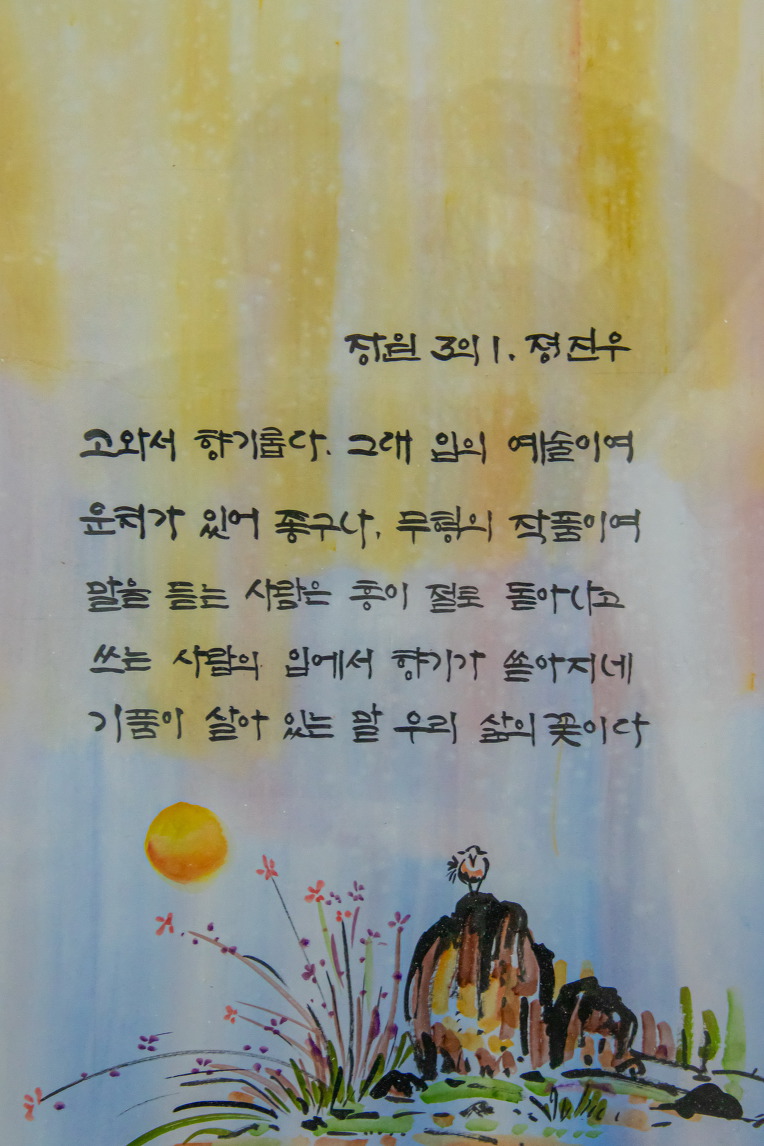 장원 3의 1. 정진우
고와서 향기롭다. 그대 입의 예술이여
운치가 있어 좋구나, 무형의 작품이여
말을 듣는 사람은 흥이 절로 돋아나고
쓰는 사람의 입에서 향기가 쏟아지네
기품이 살아 있는 말 우리 삶의 꽃이다